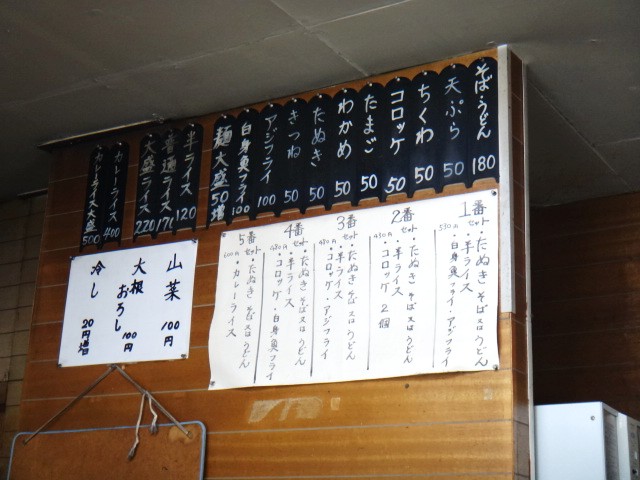 そば・うどん 180
天ぷら 50
ちくわ 50
コロッケ 50
たまご 50
わかめ 50
たぬき 50
きつね 50
アジフライ 100
白身魚フライ 100
麺大盛 50増
半ライス 120
普通ライス 170
大盛ライス 220
カレーライス 400
カレーライス大盛 500
1番セット
・たぬきそば又はうどん
・半ライス
・白身魚フライ・アジフライ
530円
2番セット
・たぬきそば又はうどん
・半ライス
・コロッケ 2個
430円
3番セット
・たぬきそば又はうどん
・半ライス
・コロッケ・アジフライ
480円
4番セット
・たぬきそば又はうどん
・半ライス
・コロッケ・白身魚フライ
480円
5番セット
・たぬきそば又はうどん
・カレーライス
600円
山菜 100円
大根おろし 100円
冷し 20円増